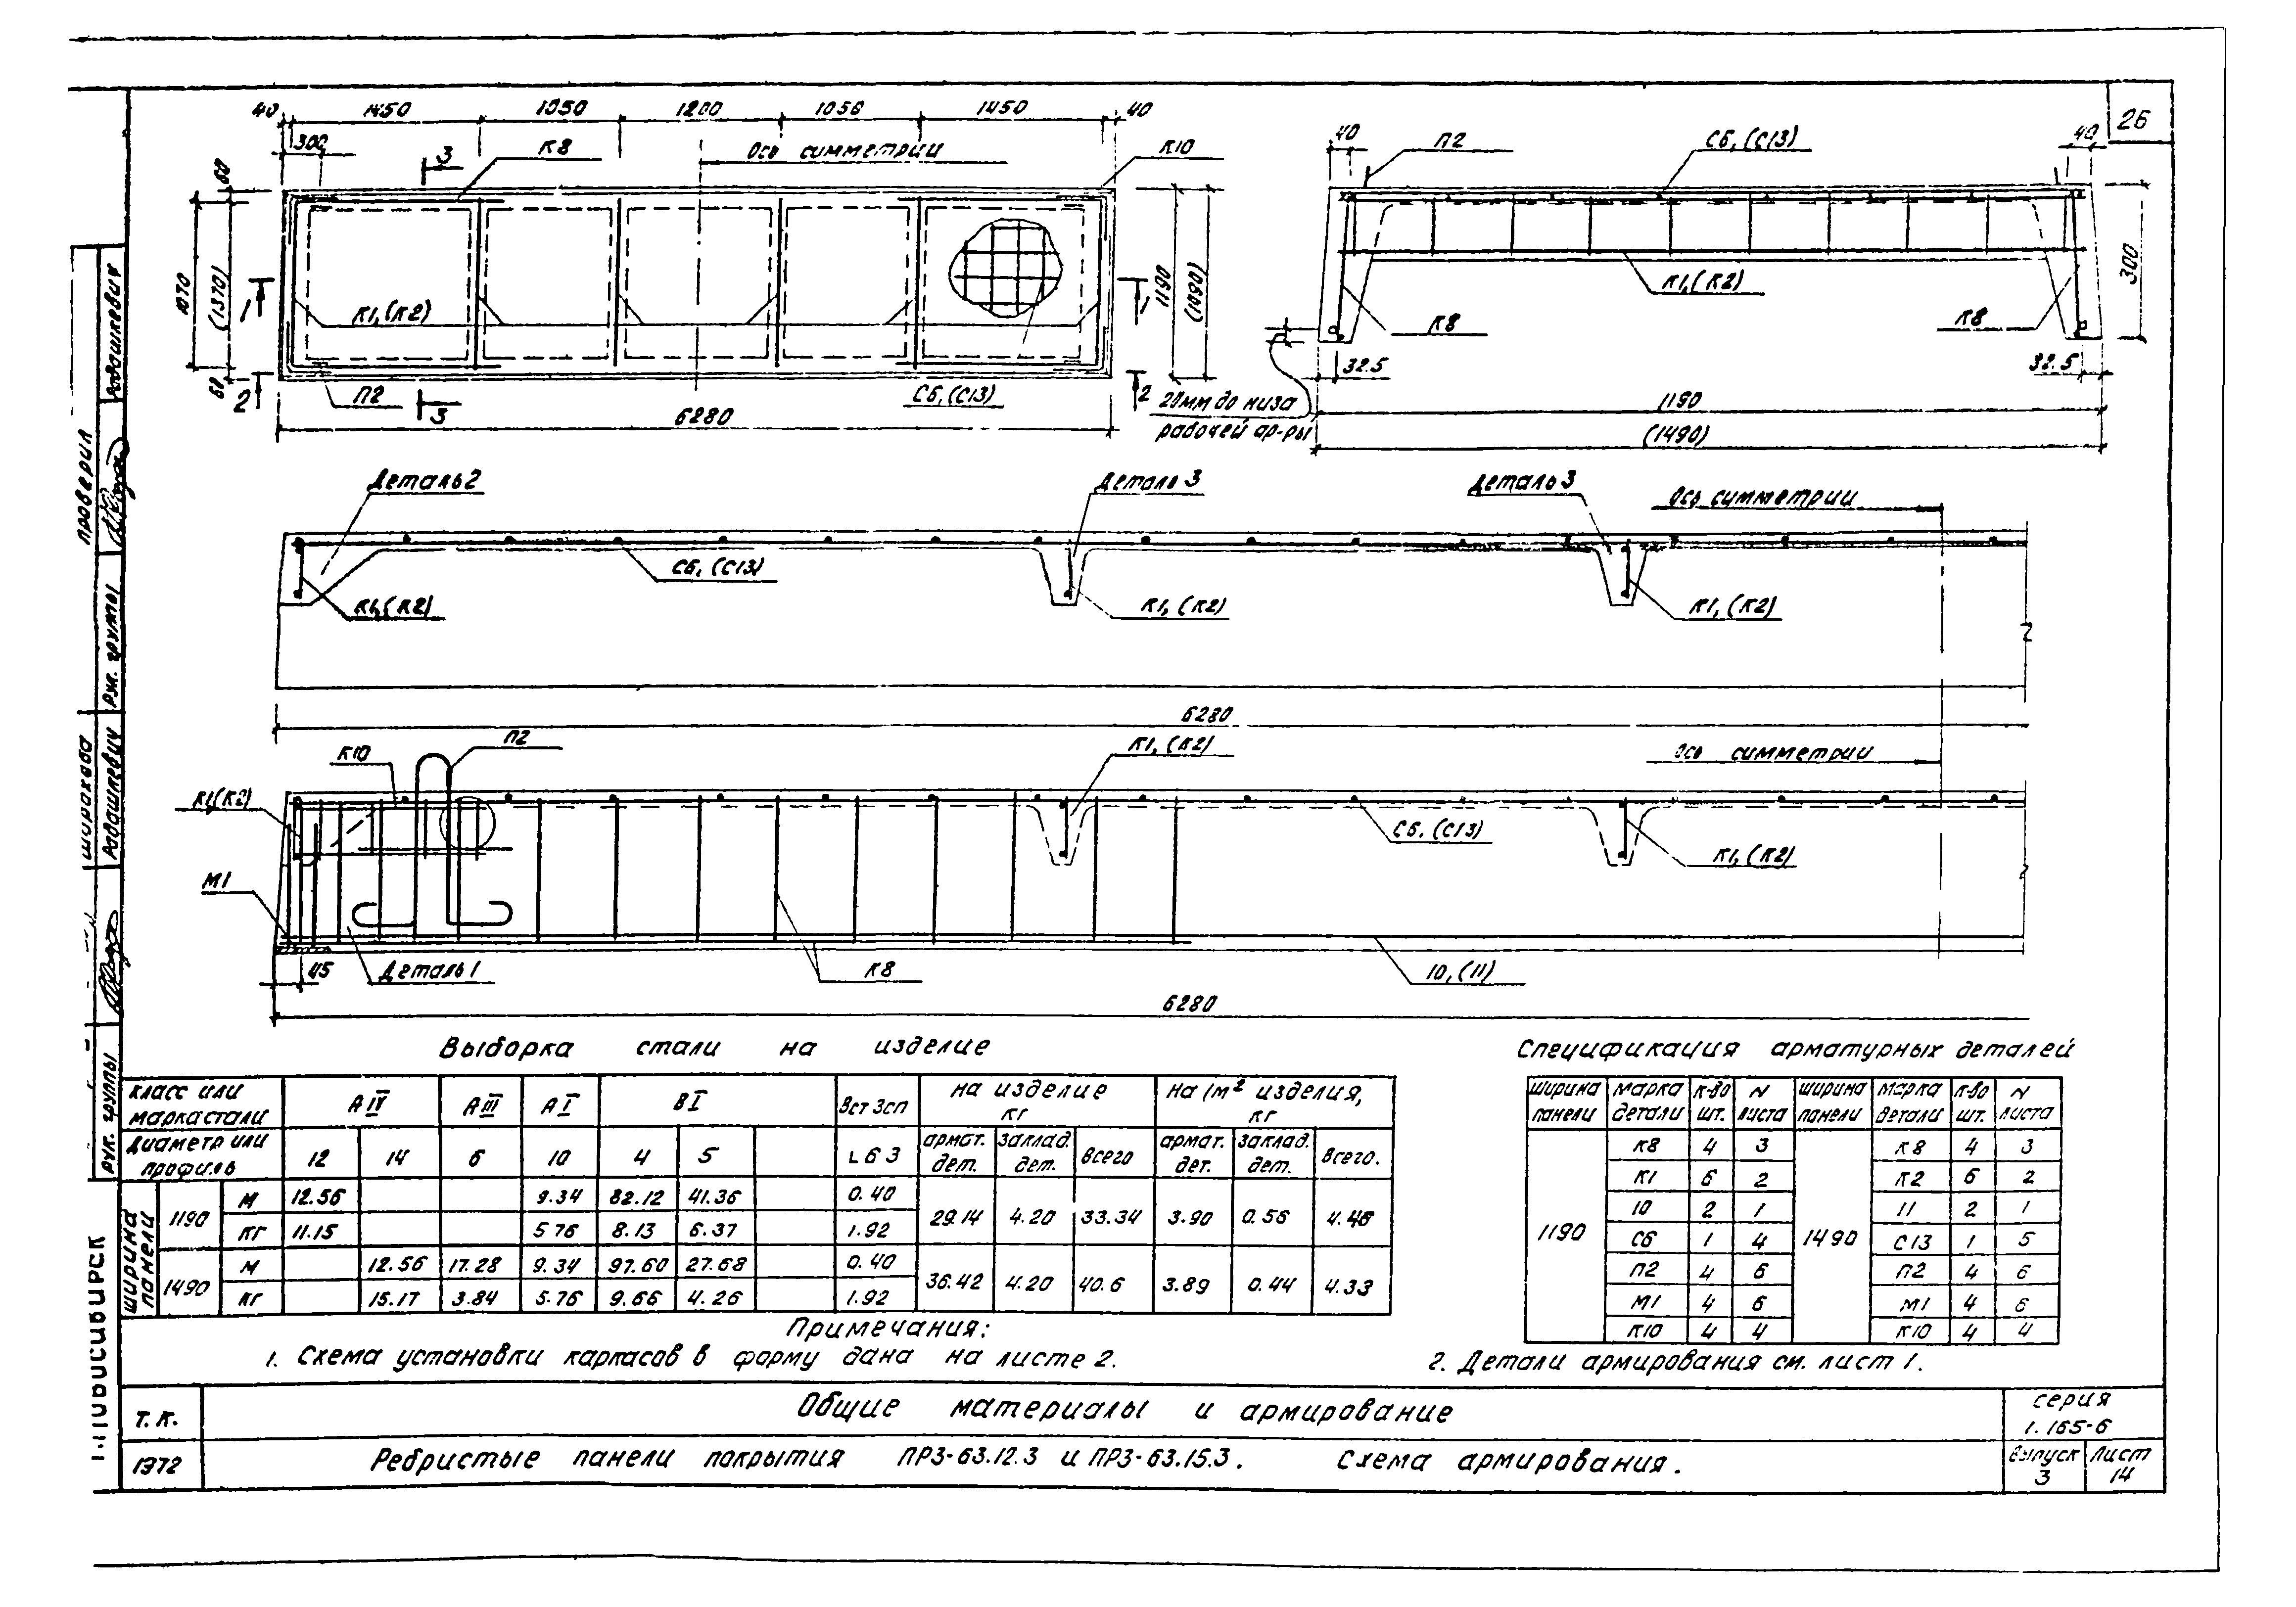 26
40 1450 1050 1200 1050 1450 40
300
3
К8
Ось симметрии
К10
60
1070
(1370)
60
1
К1,(К2)
1
1190
(1490)
2
П2
3
С6,(С13)
2
6280
40
П2
С6,(С13)
40
300
К1,(К2)
К8
К8
32.5
32.5
20мм до низа
рабочей ар-ры
1190
(1490)
Деталь 2
Деталь 3
Деталь 3
Ось симметрии
С6,(С13)
К1,(К2)
К1,(К2)
К1,(К2)
6280
К10
П2
К1,(К2)
Ось симметрии
К1(К2)
С6,(С13)
К1,(К2)
М1
45
Деталь 1
К8
10,(11)
6280
Выборка стали на изделие
класс или марка стали
А IV
А III
А I
В I
Вст 3сп
на изделие кг
на 1м² изделия, кг
Диаметр или профиль
12 14 6 10 4 5 L 63
армат. дет.
заклад. дет.
всего
армат. дет.
заклад. дет.
всего.
ширина панели
1190
м 12.56 9.34 82.12 41.36 0.40
29.14 4.20 33.34 3.90 0.56 4.46
кг 11.15 5 76 8.13 6.37 1.92
1490
м 12.56 17.28 9.34 97.60 27.68 0.40
36.42 4.20 40.6 3.89 0.44 4.33
кг 15.17 3.84 5.76 9.66 4.26 1.92
Спецификация арматурных деталей
ширина панели
марка детали
к-во шт.
N листа
ширина панели
марка детали
к-во шт.
N листа
1190
1490
К8 4 3 К8 4 3
К1 6 2 К2 6 2
10 2 1 11 2 1
С6 1 4 С13 1 5
П2 4 6 П2 4 6
М1 4 6 М1 4 6
К10 4 4 К10 4 4
Примечания:
1. Схема установки каркасов в форму дана на листе 2.
2. Детали армирования см. лист 1.
Т.К.
Общие материалы и армирование
серия
1.165-6
1972
Ребристые панели покрытия ПР3-63.12.3 и ПР3-63.15.3. Схема армирования.
Выпуск
3
Лист
14
проверил
Рук. группы
Широкова
Адашкевич
рук. группы